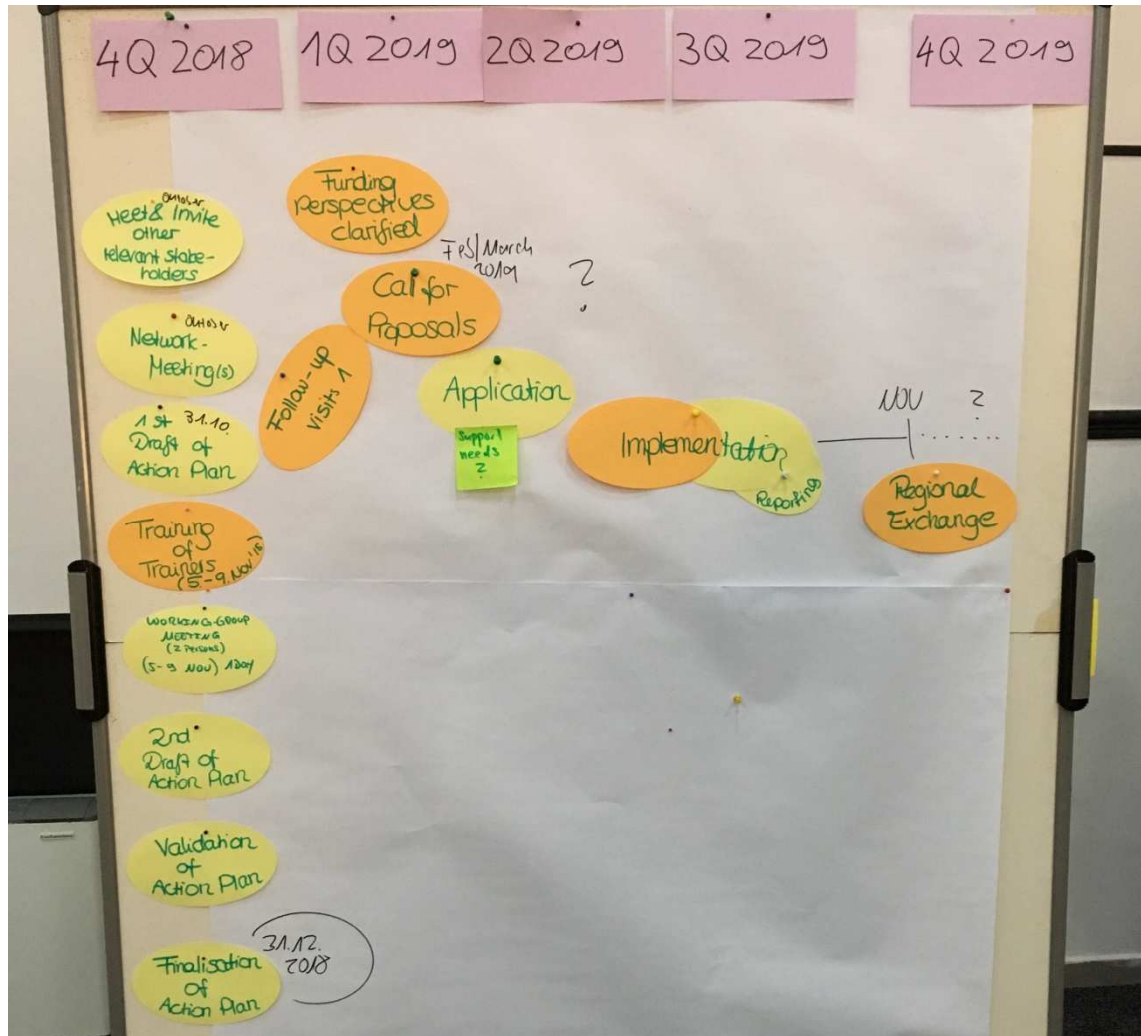 4Q 2018
1Q 2019
2Q 2019
3Q 2019
4Q 2019
Meet & Invite
other
relevant stake-
holders
Network-
Meeting(s)
1st 31.10.
Draft of
Action Plan
Training
of
Trainers
(5.-9. Nov '18)
WORKING-GROUP
MEETING
(2 Persons)
(5-9 NOV) 1 DAY
2nd
Draft of
Action Plan
Validation
of
Action Plan
Finalisation
of
Action Plan
31.12.
2018
Funding
perspectives
clarified
Feb/March
2019
?
Call for
Proposals
Follow-up
visits 1
Application
Support
needs
?
Implementation
Reporting
NOV ?
Regional
Exchange